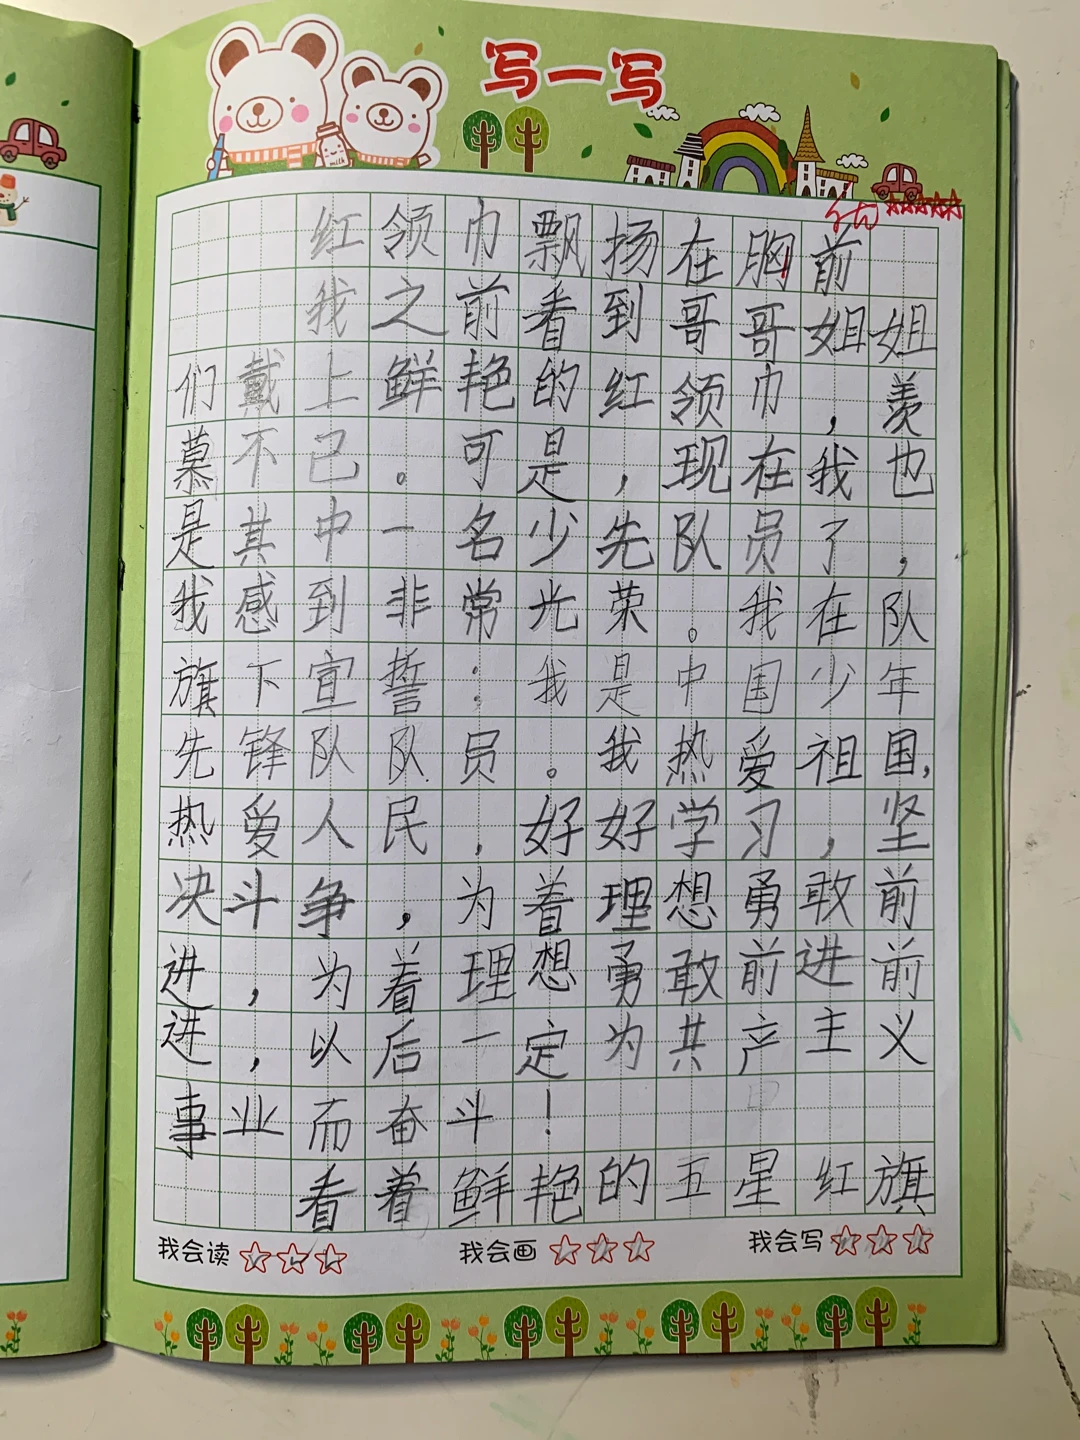 写一写
milk
红领巾飘扬在胸前
我之前看到哥哥姐姐
们戴上鲜艳的红领巾，羡
慕不已。可是，现在我也
是其中一名少先队员了，
我感到非常光荣。我在队
旗下宣誓：我是中国少年
先锋队队员。我热爱祖国，
热爱人民，好好学习，坚
决斗争，为着理想勇敢前
进，为着理想勇敢前进前
进，以后一定为共产主义
事业而奋斗！
看着鲜艳的五星红旗
我会读 我会画 我会写